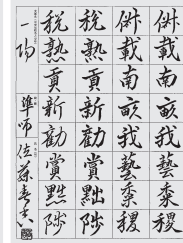 俶載南畝我藝黍稷
俶載南畝我藝黍稷
税熟貢新勸賞黜陟
税熟貢新勸賞黜陟